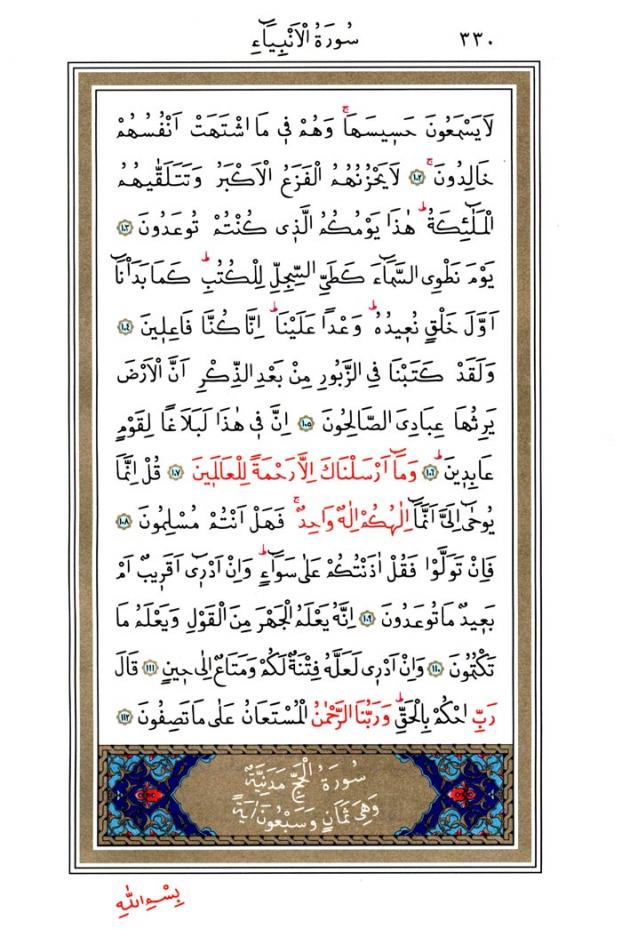 سُورَةُ الْاَنْبِيَٓاءِ ٣٣٠
لَا يَسْمَعُونَ حَس۪يسَهَاۚ وَهُمْ ف۪ي مَا اشْتَهَتْ اَنْفُسُهُمْ
خَالِدُونَۚ ﴿١٠٢﴾ لَا يَحْزُنُهُمُ الْفَزَعُ الْاَكْبَرُ وَتَتَلَقّٰيهُمُ
الْمَلٰٓئِكَةُۜ هٰذَا يَوْمُكُمُ الَّذ۪ي كُنْتُمْ تُوعَدُونَ ﴿١٠٣﴾
يَوْمَ نَطْوِي السَّمَٓاءَ كَطَيِّ السِّجِلِّ لِلْكُتُبِۜ كَمَا بَدَأْنَٓا
اَوَّلَ خَلْقٍ نُع۪يدُهُۜ وَعْدًا عَلَيْنَاۜ اِنَّا كُنَّا فَاعِل۪ينَ ﴿١٠٤﴾
وَلَقَدْ كَتَبْنَا فِي الزَّبُورِ مِنْ بَعْدِ الذِّكْرِ اَنَّ الْاَرْضَ
يَرِثُهَا عِبَادِيَ الصَّالِحُونَ ﴿١٠٥﴾ اِنَّ ف۪ي هٰذَا لَبَلَاغًا لِقَوْمٍ
عَابِد۪ينَۜ ﴿١٠٦﴾ وَمَٓا اَرْسَلْنَاكَ اِلَّا رَحْمَةً لِلْعَالَم۪ينَ ﴿١٠٧﴾ قُلْ اِنَّمَا
يُوحٰٓى اِلَيَّ اَنَّمَٓا اِلٰهُكُمْ اِلٰهٌ وَاحِدٌۚ فَهَلْ اَنْتُمْ مُسْلِمُونَ ﴿١٠٨﴾
فَاِنْ تَوَلَّوْا فَقُلْ اٰذَنْتُكُمْ عَلٰى سَوَٓاءٍۜ وَاِنْ اَدْر۪ٓي اَقَر۪يبٌ اَمْ
بَع۪يدٌ مَا تُوعَدُونَ ﴿١٠٩﴾ اِنَّهُ يَعْلَمُ الْجَهْرَ مِنَ الْقَوْلِ وَيَعْلَمُ مَا
تَكْتُمُونَ ﴿١١٠﴾ وَاِنْ اَدْر۪ي لَعَلَّهُ فِتْنَةٌ لَكُمْ وَمَتَاعٌ اِلٰى ح۪ينٍ ﴿١١١﴾ قَالَ
رَبِّ احْكُمْ بِالْحَقِّۜ وَرَبُّنَا الرَّحْمٰنُ الْمُسْتَعَانُ عَلٰى مَا تَصِفُونَ ﴿١١٢﴾
سُورَةُ الْحَجِّ مَدَنِيَّةٌ
وَهِيَ ثَمَانٍ وَسَبْعُونَ اٰيَةً
بِسْمِ اللّٰهِ